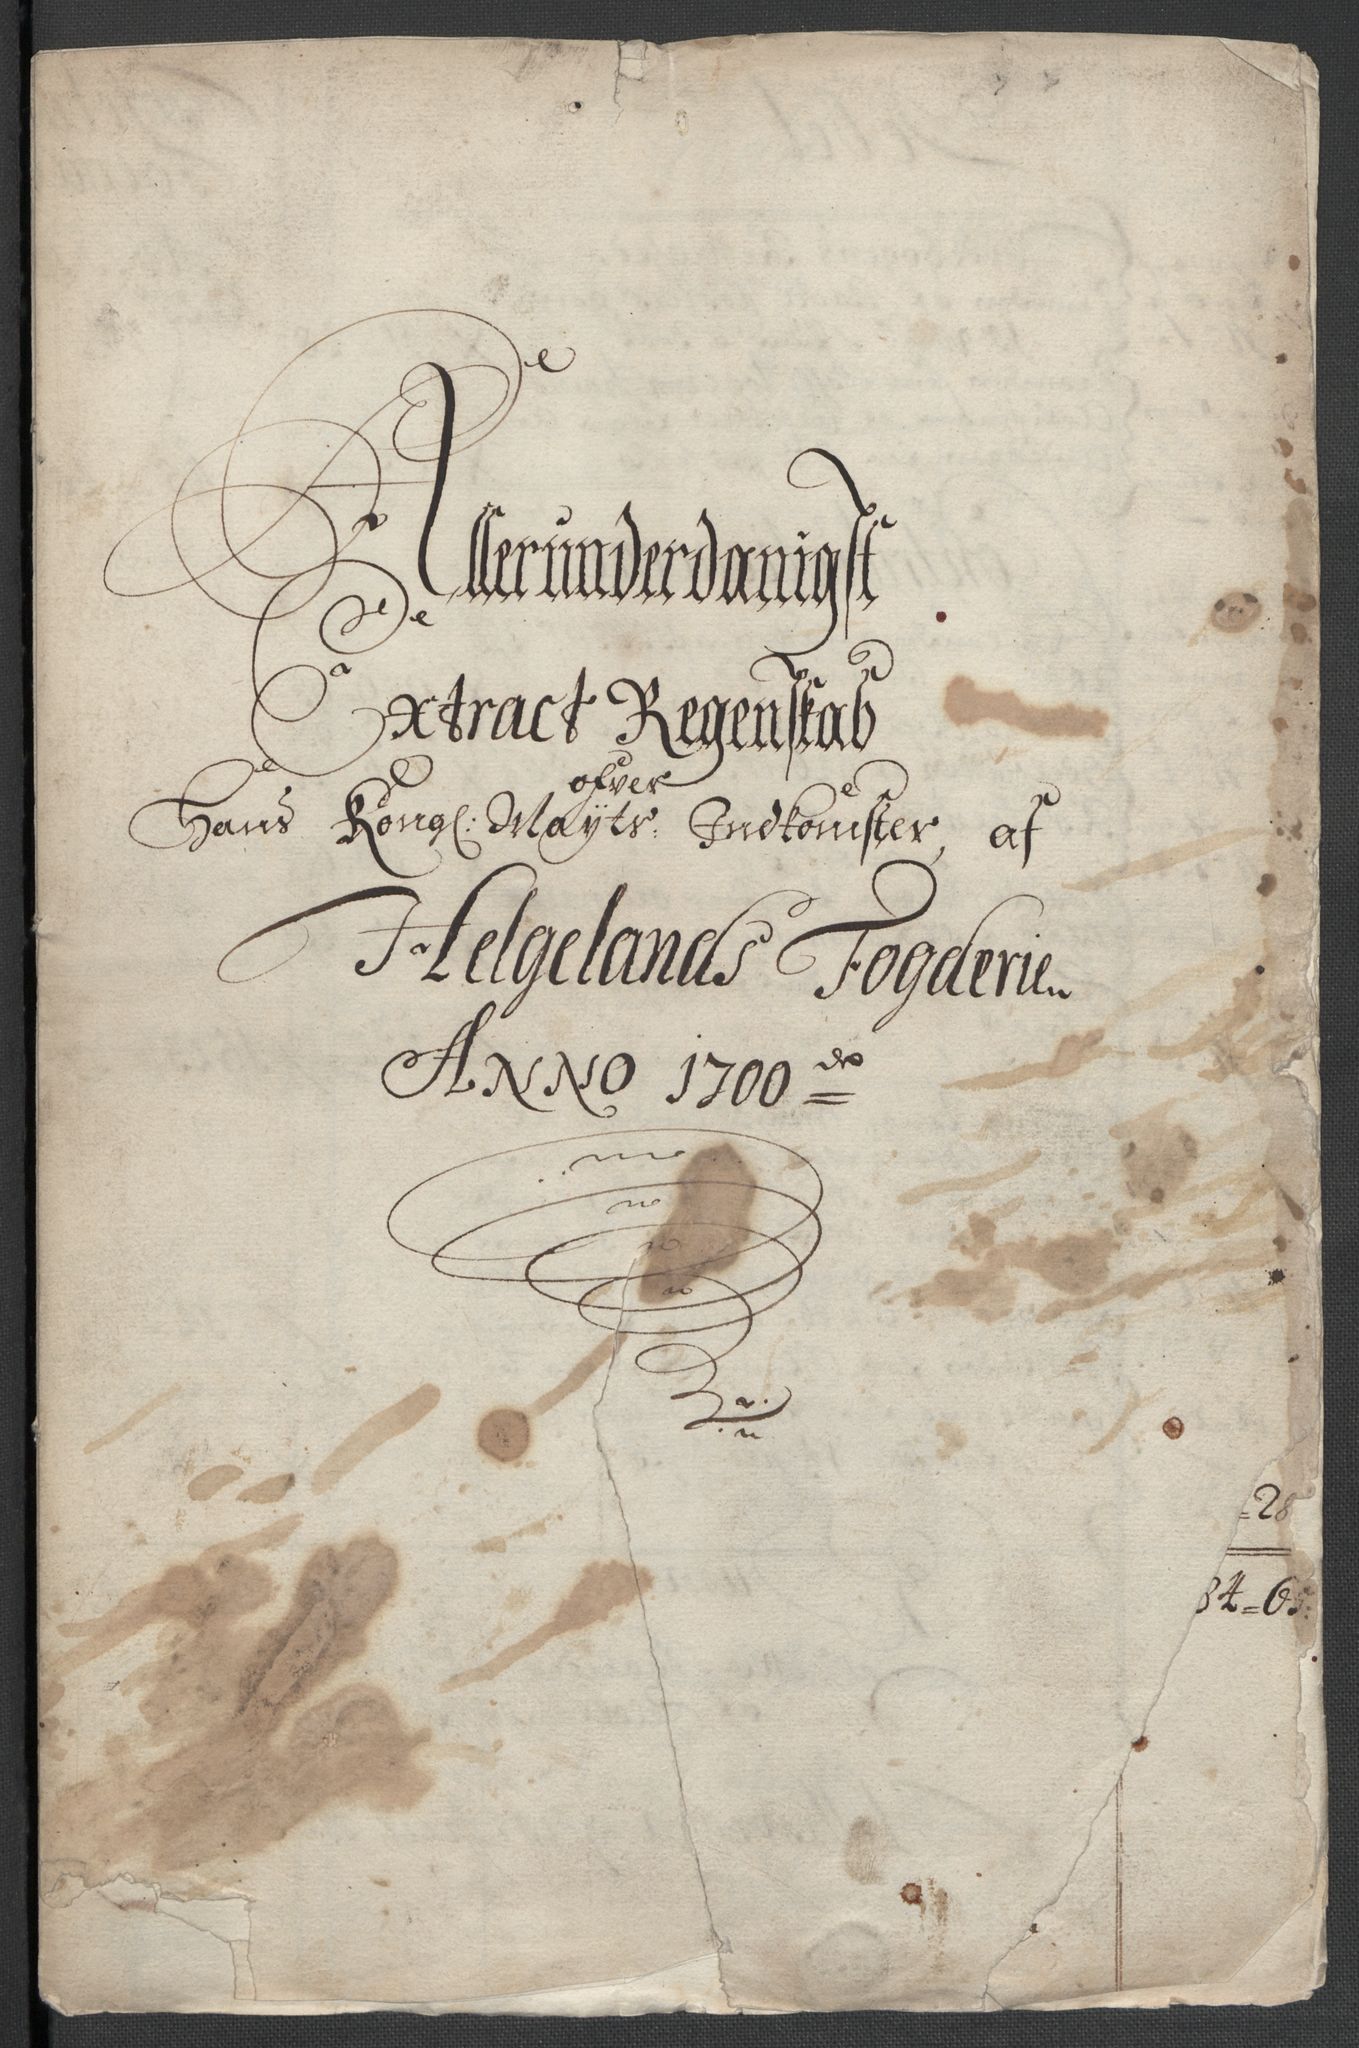 Allerunderdanigst
Extract Regenskab
ofver
Hans Kongl: Maÿts: Indkomster, af
Helgelands Fogderie
ANNO 1700
=28
84=65: